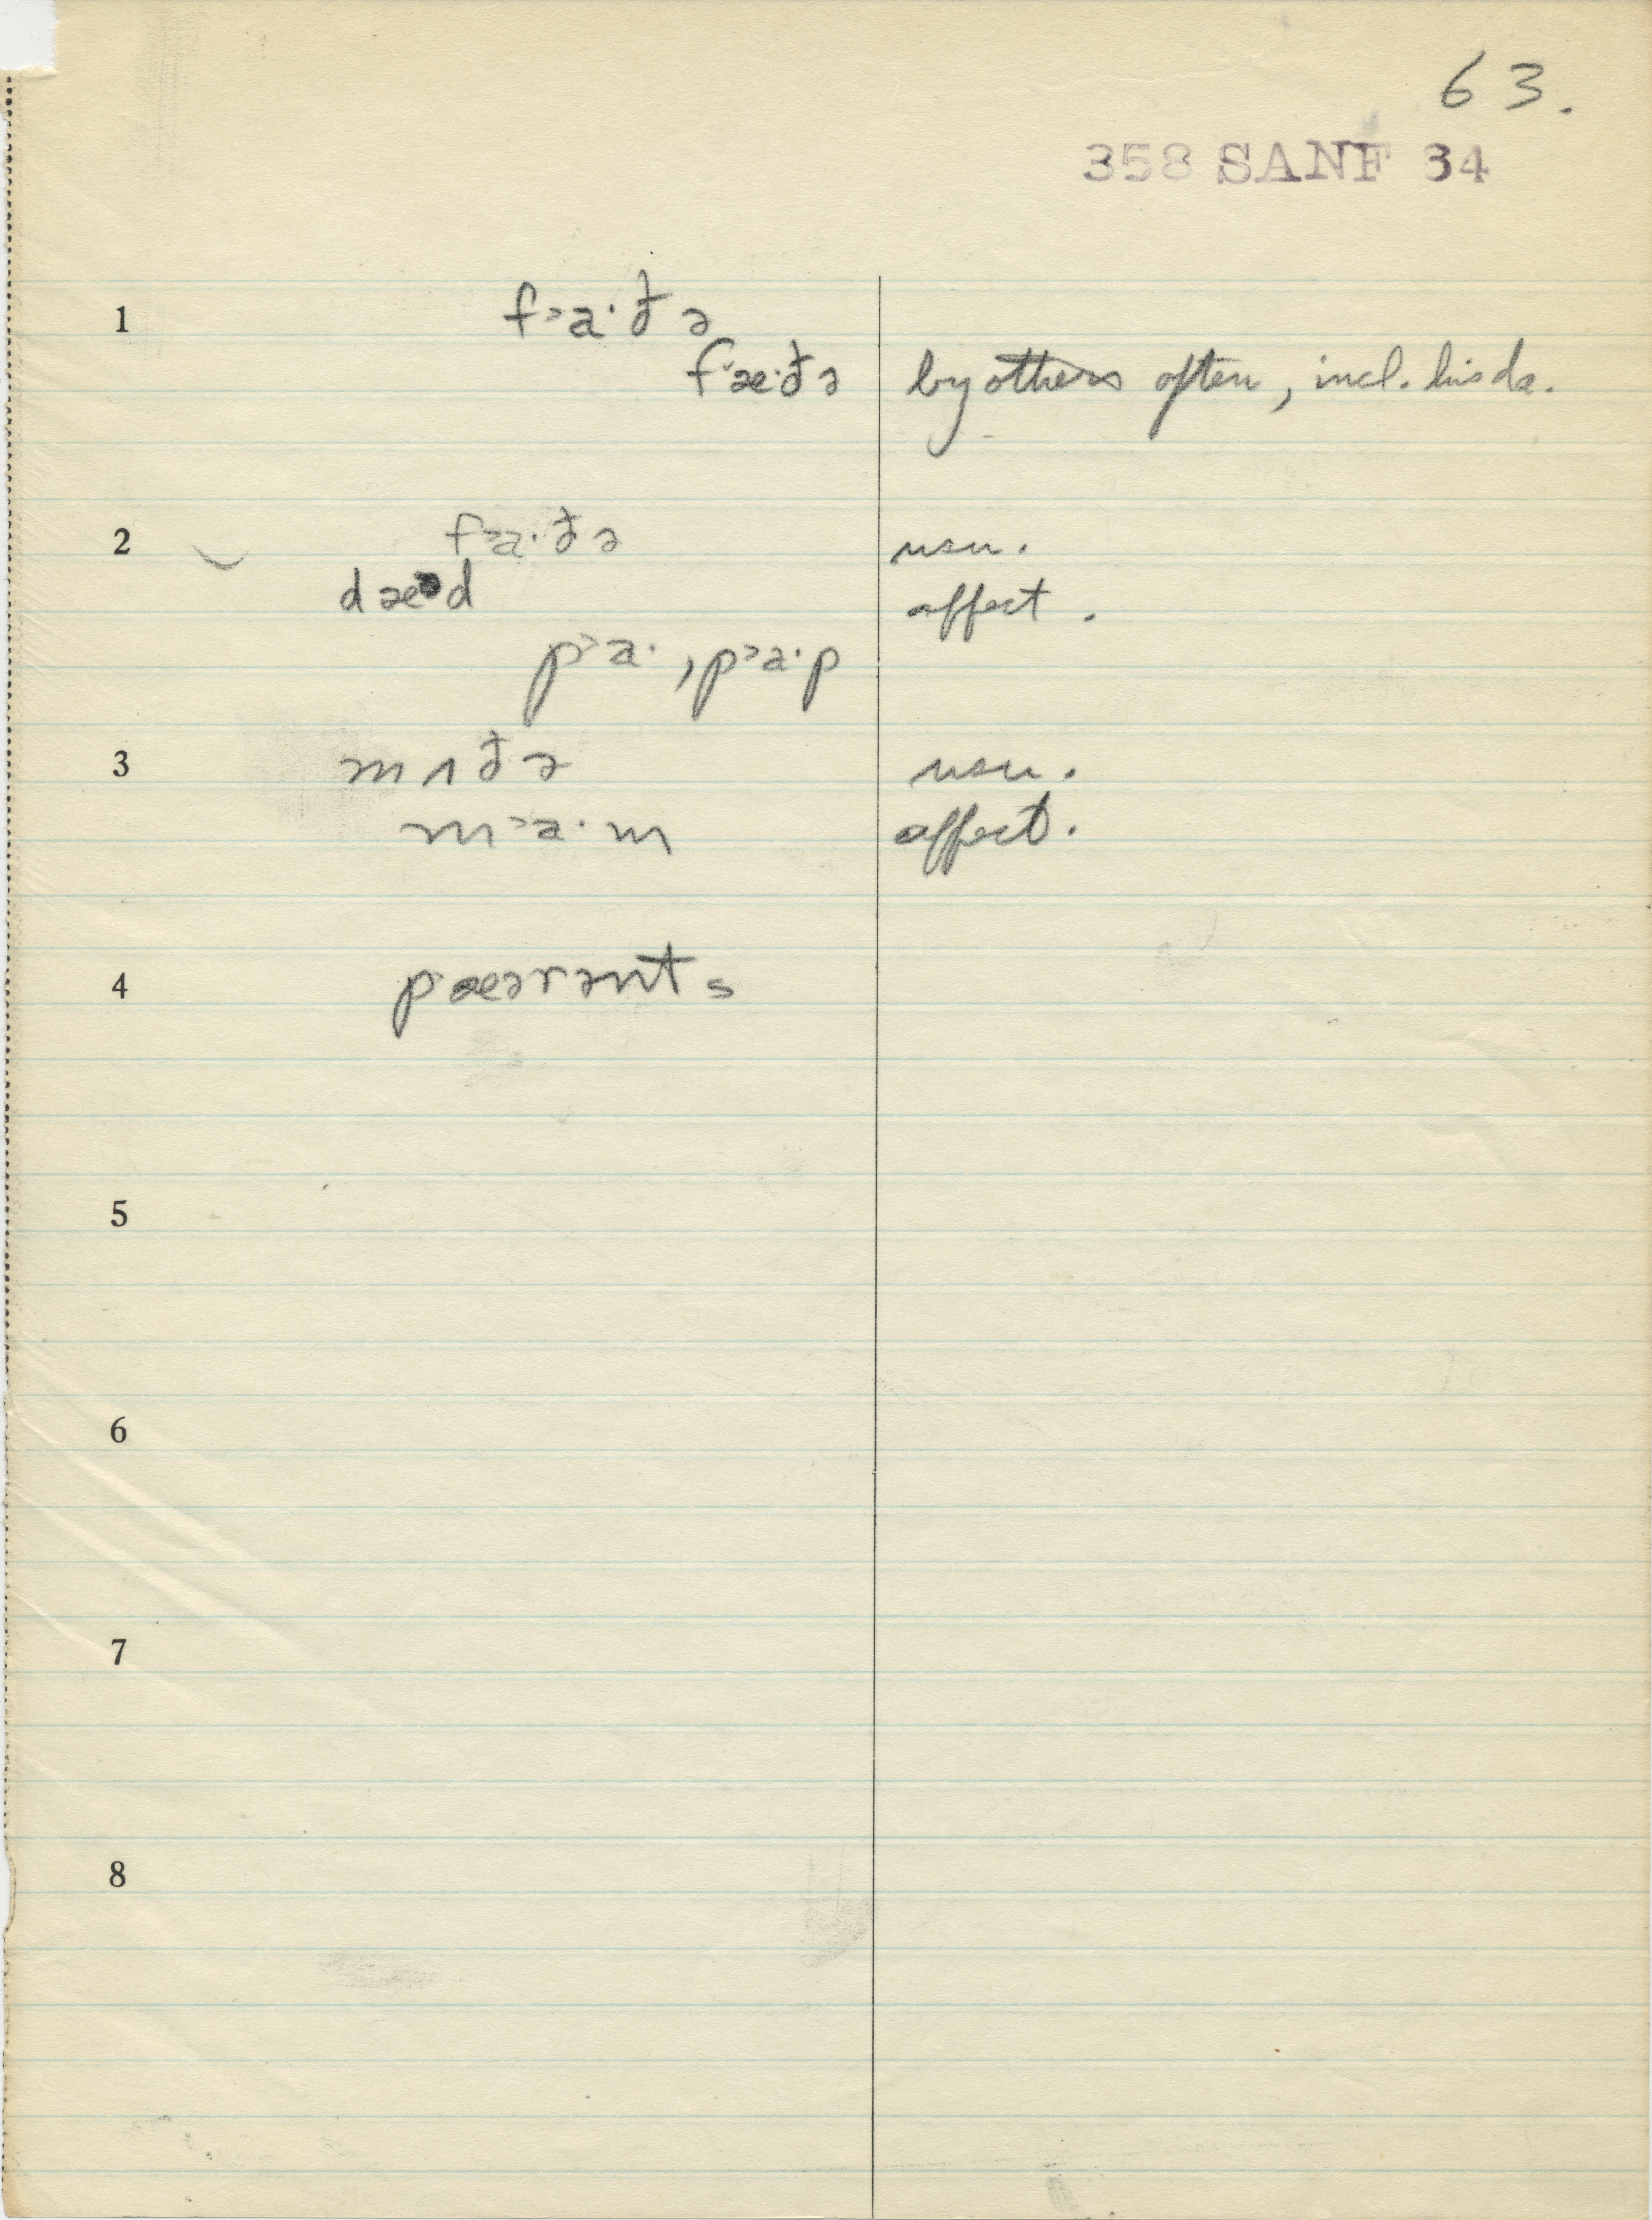 63.
358 SANF 34
1 f˃a·ðə
f˂æ·ðə by others often, incl. his da.
2 f˃a·ðə usu.
dæᵊd affect.
p˃a·, p˃a·p
3 mʌðə usu.
m˃a·m affect.
4 pæərənts
5
6
7
8